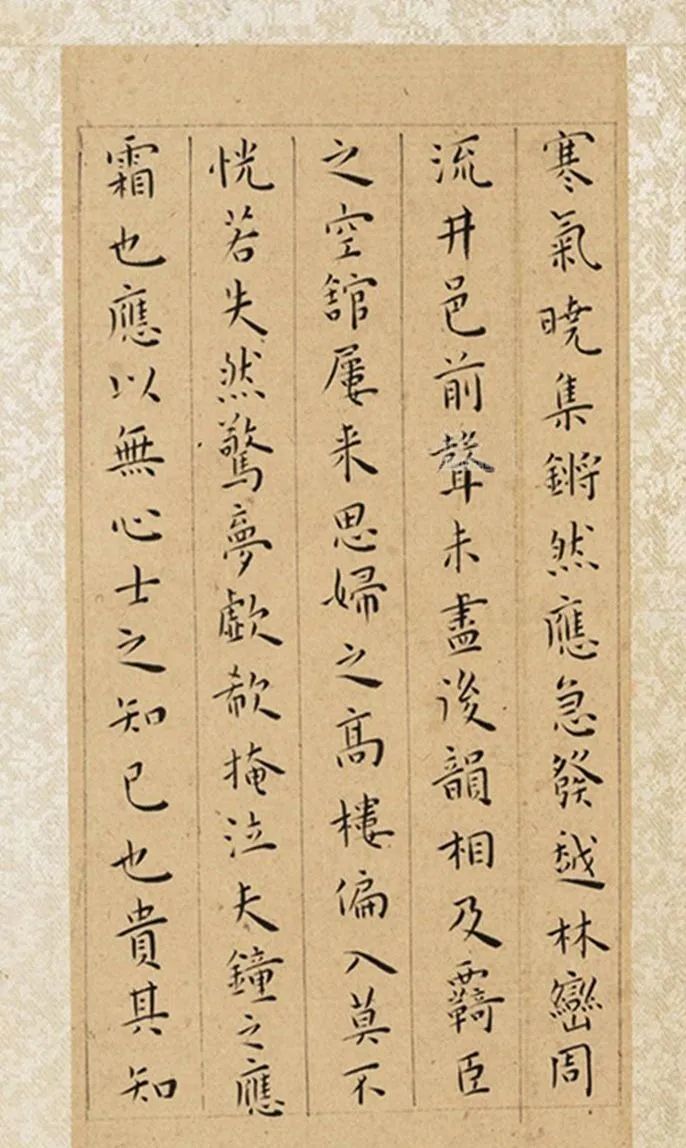 寒氣曉集鏘然應急發越林巒周
流井邑前聲未盡後韻相及羇臣
之空舘屢来思婦之高樓偏入莫不
恍若失然驚夢歔欷掩泣夫鐘之應
霜也應以無心士之知已也貴其知